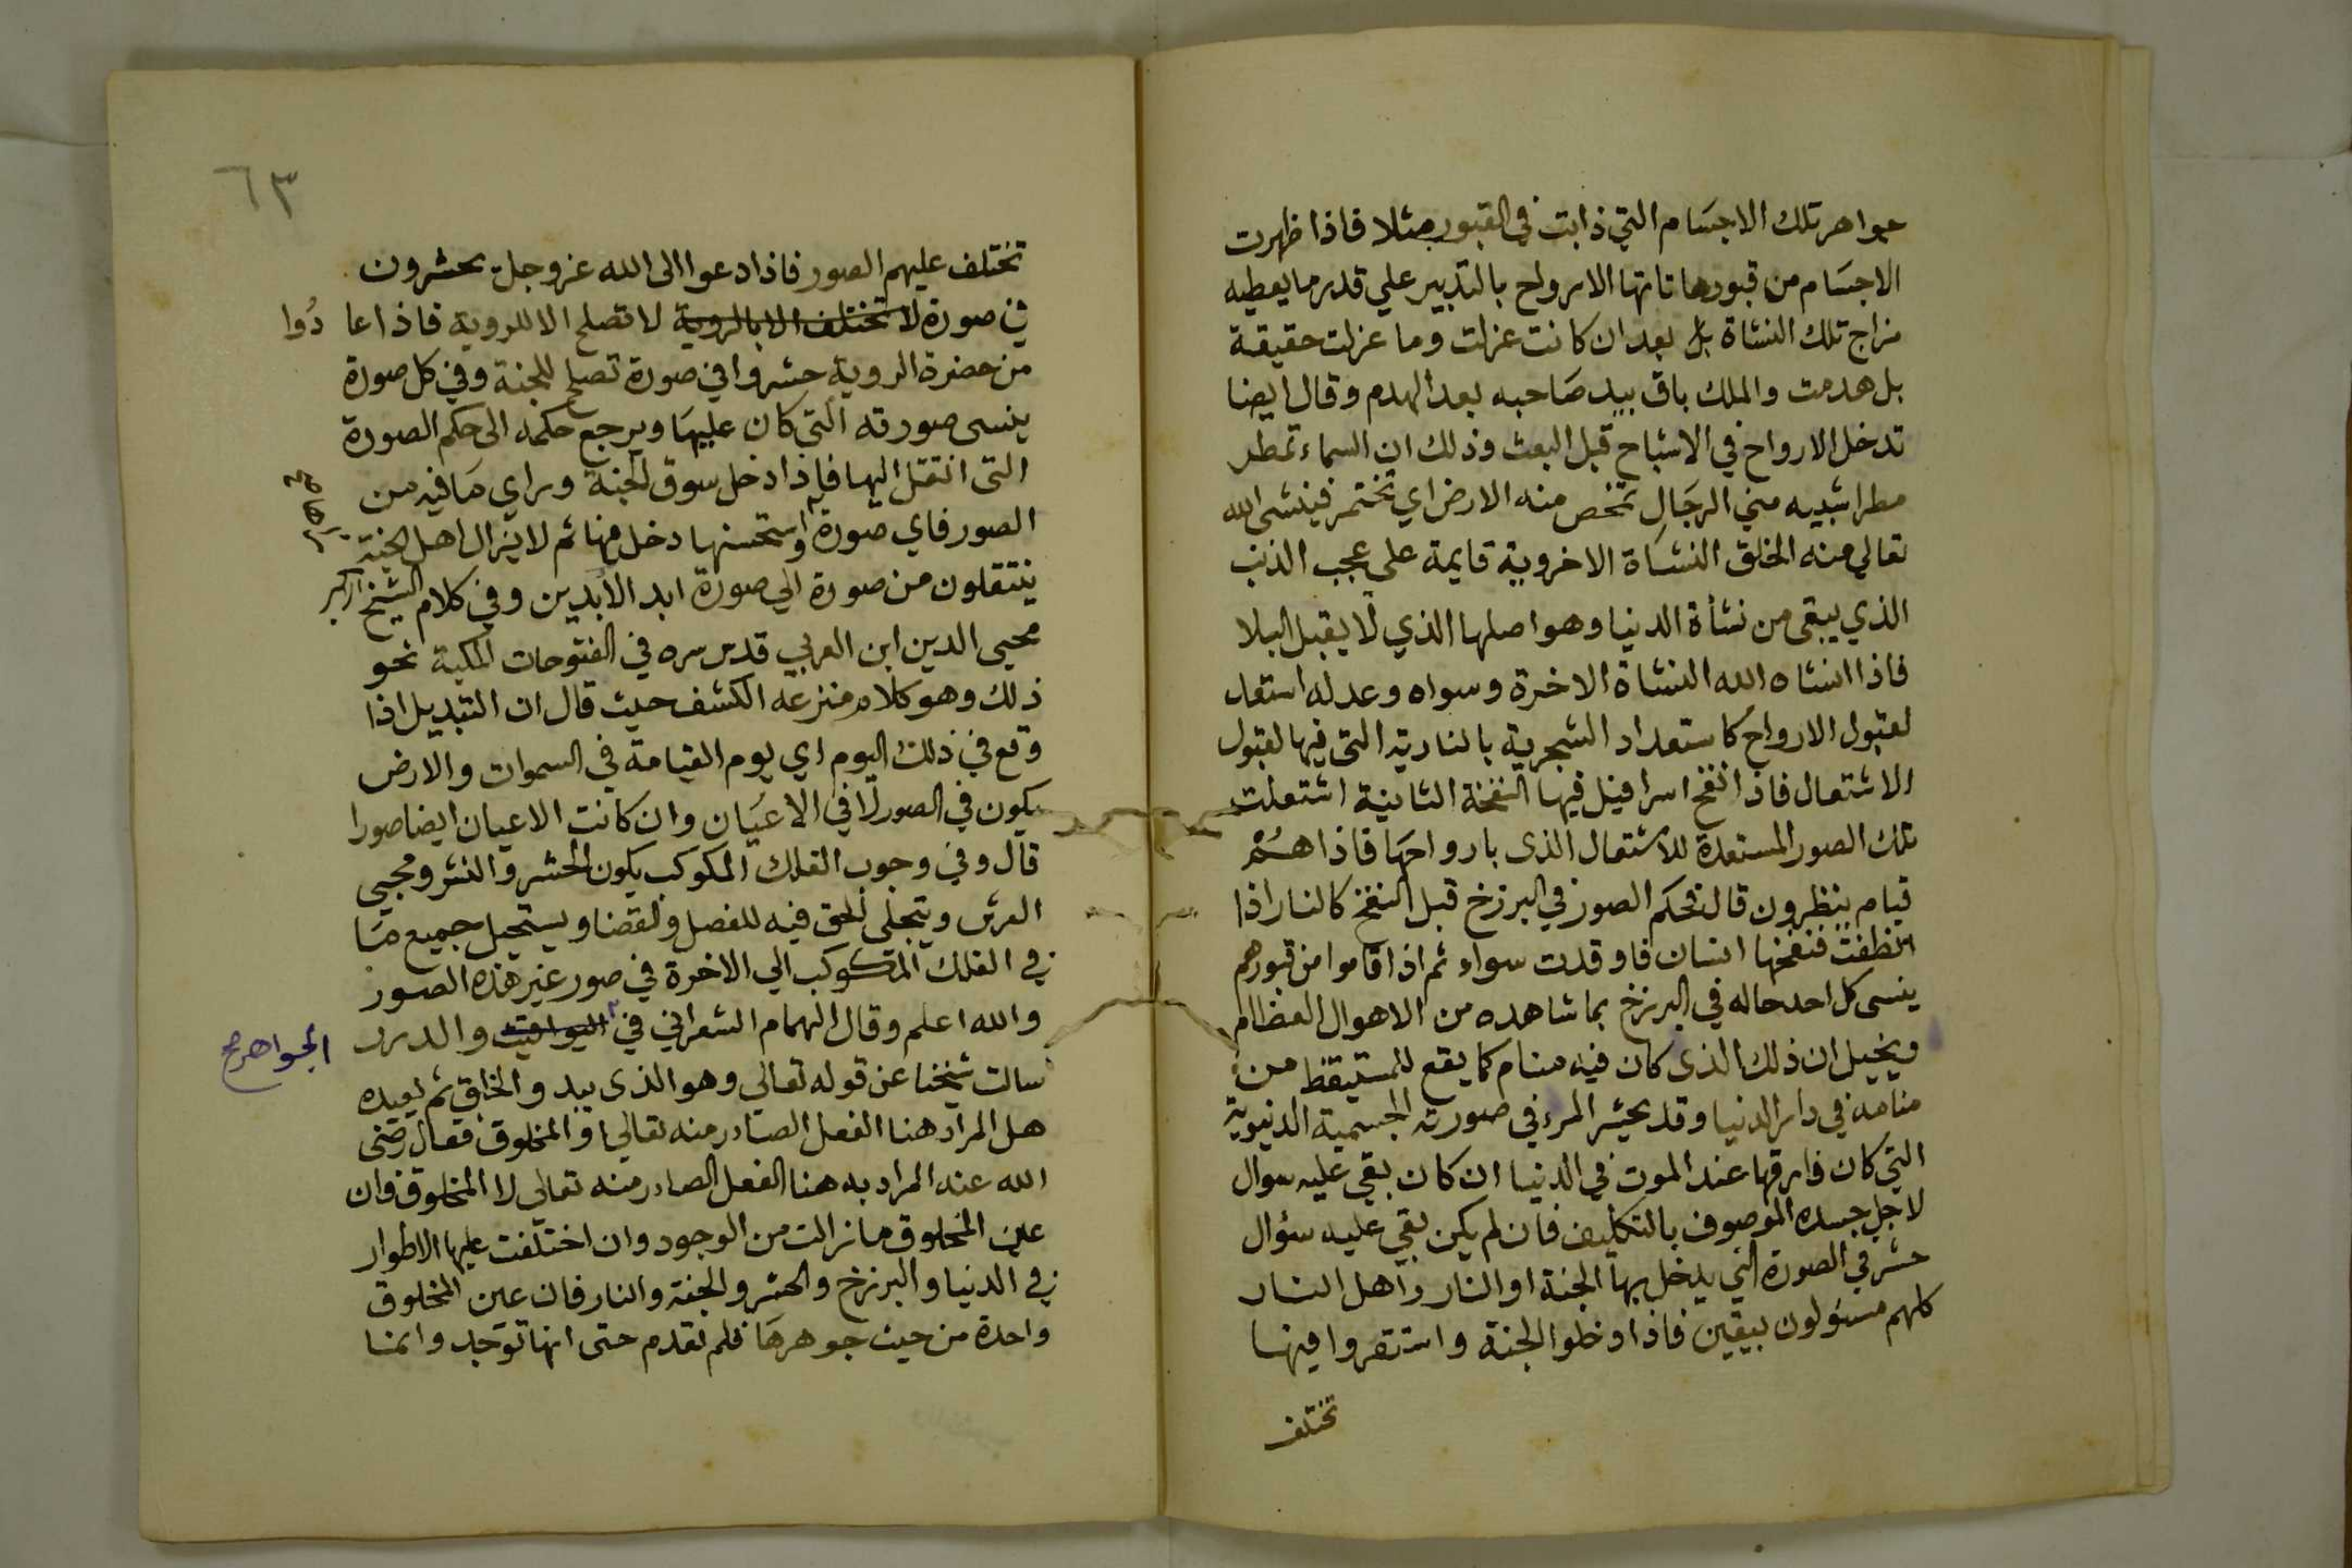 جواهر تلك الاجسام التي ذابت في القبور مثلا فاذا ظهرت
الاجسام من قبورها تاتها الارواح بالتدبير علي قدر ما يعطيه
مزاج تلك النشاة بل بعد ان كانت عزلت وما عزلت حقيقة
بل هدمت والملك باق بيد صاحبه بعد الهدم وقال ايضا
تدخل الارواح في الاشباح قبل البعث وذلك ان السماء تمطر
مطرا شبيه مني الرجال تمخض منه الارض اي تختمر فينشى الله
تعالي منه الخلق النشاة الاخروية قايمة على عجب الذنب
الذي يبقى من نشأة الدنيا وهو اصلها الذي لا يقبل البلا
فاذا انشاه الله النشاة الاخرة وسواه وعدله استعد
لقبول الارواح كاستعداد الشجرية بالنارية التي فيها لقبول
الاشتعال فاذا نفخ اسرافيل فيها النفخة الثانية اشتعلت
تلك الصور المستعدة للاشتعال الذى بارواحها فاذا هم
قيام ينظرون قال فحكم الصور في البرزخ قبل النفخ كالنار اذا
انطفت فنفخها انسان فاوقدت سواء ثم اذا قاموا من قبورهم
ينسى كل احد حاله في البرزخ بما شاهده من الاهوال العظام
ويخيل ان ذلك الذى كان فيه منام كما يقع للمستيقظ من
منامه في دار الدنيا وقد يحشر المرء في صورته الجسمية الدنيوية
التي كان فارقها عند الموت في الدنيا ان كان بقي عليه سوال
لاجل جسده الموصوف بالتكليف فان لم يكن بقي عليه سؤال
حشر في الصورة التي يدخل بها الجنة او النار واهل النار
كلهم مسئولون بيقين فاذا دخلوا الجنة واستقروا فيها
تختلف
٦٣
تختلف عليهم الصور فاذا دعوا الى الله عز وجل يحشرون
في صورة لا تختلف الا بالروية لا تصلح الا للروية فاذا عادُوا
من حضرة الروية حشروا في صورة تصلح للجنة وفي كل صورة
ينسى صورته التي كان عليها ويرجع حكمه الى حكم الصورة
التى انتقل اليها فاذا دخل سوق الجنة وراي ما فيه من
الصور فاي صورة استحسنها دخل فيها ثم لا يزال اهل الجنة
ينتقلون من صورة الي صورة ابد الابدين وفي كلام الشيخ الاكبر
محيى الدين ابن العربي قدس سره في الفتوحات المكية نحو
ذلك وهو كلام منزعه الكشف حيث قال ان التبديل اذا
وقع في ذلك اليوم اي يوم القيامة في السموات والارض
يكون في الصور لا في الاعيان وان كانت الاعيان ايضا صورا
قال وفي وجوب الفلك المكوكب يكون الحشر والنشر ومجيى
العرش ويتجلى الحق فيه للفصل والقضا ويستحيل جميع ما
في الفلك المكوكب الي الاخرة في صور غير هذه الصور
والله اعلم وقال الهمام الشعراني في اليواقيت والدرر
الجواهر صح
سالت شيخنا عن قوله تعالي وهو الذى يبدو الخلق ثم يعيده
هل المراد هنا الفعل الصادر منه تعالي او المخلوق فقال رضى
الله عنه المراد به هنا الفعل الصادر منه تعالى لا المخلوق فان
عين المخلوق ما زالت من الوجود وان اختلفت عليها الاطوار
في الدنيا والبرزخ والحشر والجنة والنار فان عين المخلوق
واحدة من حيث جوهرها فلم تقدم حتى انها توجد وانما